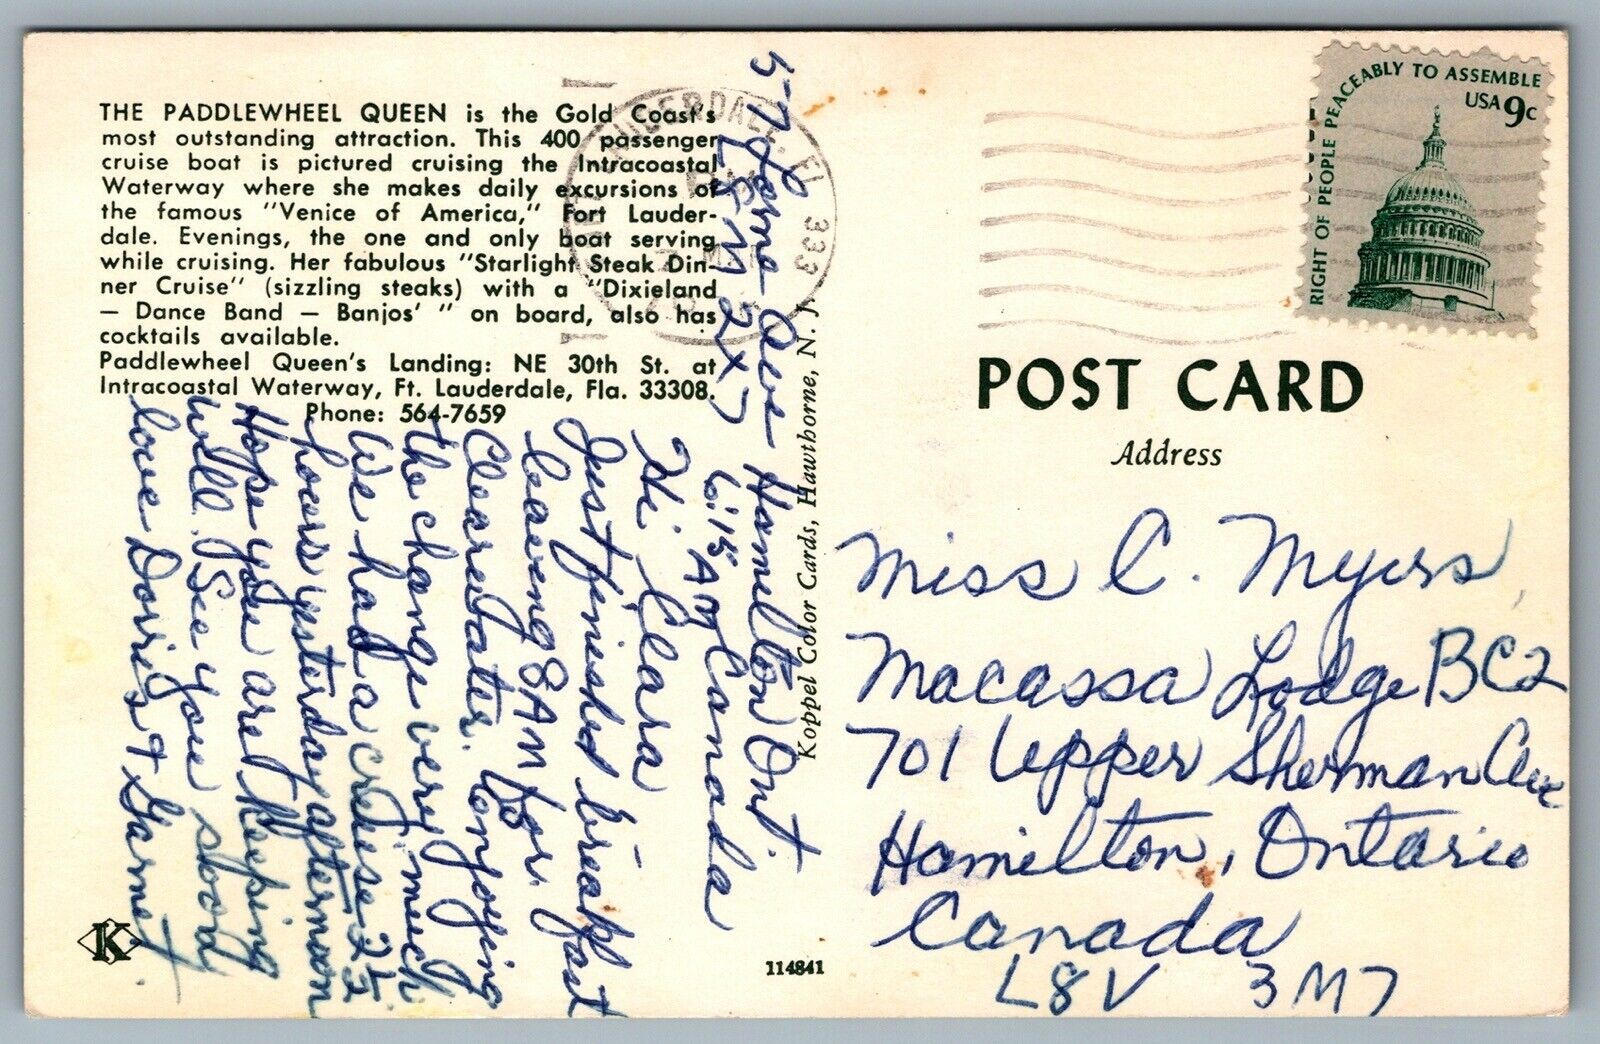 THE PADDLEWHEEL QUEEN is the Gold Coast's
most outstanding attraction. This 400 passenger
cruise boat is pictured cruising the Intracoastal
Waterway where she makes daily excursions of
the famous "Venice of America," Fort Lauder-
dale. Evenings, the one and only boat serving
while cruising. Her fabulous "Starlight Steak Din-
ner Cruise" (sizzling steaks) with a "Dixieland
— Dance Band — Banjos' " on board, also has
cocktails available.
Paddlewheel Queen's Landing: NE 30th St. at
Intracoastal Waterway, Ft. Lauderdale, Fla. 33308.
Phone: 564-7659
57 Ave Hamilton Ont.
L8M 2X7 Canada
6:15 AM
Hi Clara
Just finished breakfast
leaving 8 AM for
Clearwater. Enjoying
the change very much
We had a cruise 2 1/2
hours yesterday afternoon
Hope you are keeping
well. See you soon
love Dorris & Garnet.
K
114841
Koppel Color Cards, Hawthorne, N. J.
LAUDERDALE, FL
333
RIGHT OF PEOPLE PEACEABLY TO ASSEMBLE
USA 9c
POST CARD
Address
Miss C. Myers
Macassa Lodge BC2
701 Upper Sherman Ave
Hamilton, Ontario
Canada
L8V 3M7